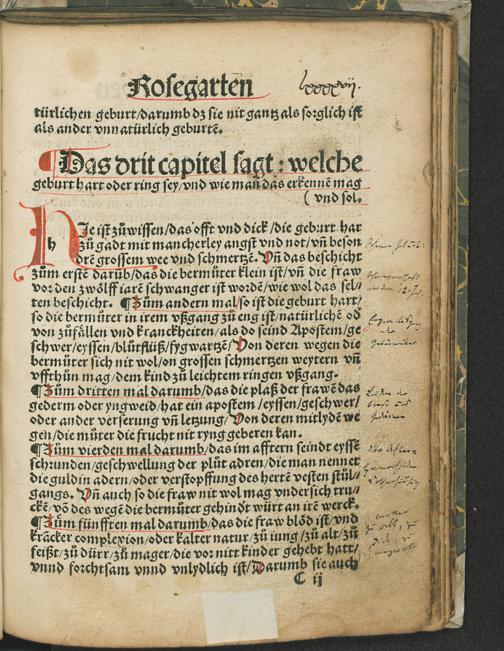 Rosegarten
türlichen geburt/darumb dz sie nit gantz als sorglich ist
als ander vnnatürlich geburtē.
Das drit capitel sagt: welche
geburt hart oder ring sey/vnd wie man das erkennē mag
( vnd sol.
h
Ie ist zů wissen/das offt vnd dick/die geburt har
zů gadt mit mancherley angst vnd not/vñ beson
drē grossem wee vnd schmertzē. Vñ das beschicht
zům erstē darūb/das die bermůter klein ist/vñ die fraw
vor den zwölff iarē schwanger ist wordē/wie wol das sel
ten beschicht. ¶ Zům andern mal/so ist die geburt hart/
so die bermůter in irem vßgang zů eng ist/natürlichē od̛
von zůfällen vnd kranckheiten/als do seind Apostem/ge
schwer/eyssen/blůtflüß/fygwartzē/Von deren wegen die
bermůter sich nit wol/on grossen schmertzen weytern vñ
vffthůn mag/dem kind zů leichtem ringen vßgang.
¶ Zům dritten mal darumb/das die plaß der frawē das
gederm oder yngweid/hat ein apostem/eyssen/geschwer/
oder ander verserung vñ letzung/Von deren mitlydē we
gen/die můter die frucht nit ryng geberen kan.
¶ Zům vierden mal darumb/das im afftern seindt eyssē
schrunden/geschwellung der plůt adren/die man nennet
die guldin adern/oder verstopffung des hertē vesten stůl/
gangs. Vñ auch so die fraw nit wol mag vndersich tru/
ckē/vō des wegē die bermůter gehindt würt an irē werck.
¶ Zům fünfften mal darumb/das die fraw blöd ist/vnd
kräcker complexion/oder kalter natur/zů iung/zů alt/zů
feißt/zů dürr/zů mager/die vor nitt kinder gehebt hatt/
vnnd forchtsam vnnd vnlydlich ist/Darumb sie auch
C ij